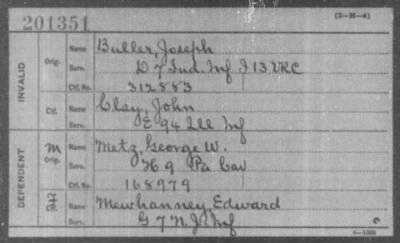 201351
(3-H-4)
INVALID
Orig. Name Buller, Joseph
Serv. D 7 Ind. Inf I 13 VRC
Ctf. No. 312883
Ctf. Name Clay, John
Serv. E 94 Ill Inf
DEPENDENT
M Orig. Name Metz, George W.
Serv. H 9 Pa Cav
Ctf. No. 168979
Name Mewhanney, Edward
Serv. G 7 N.J. Inf